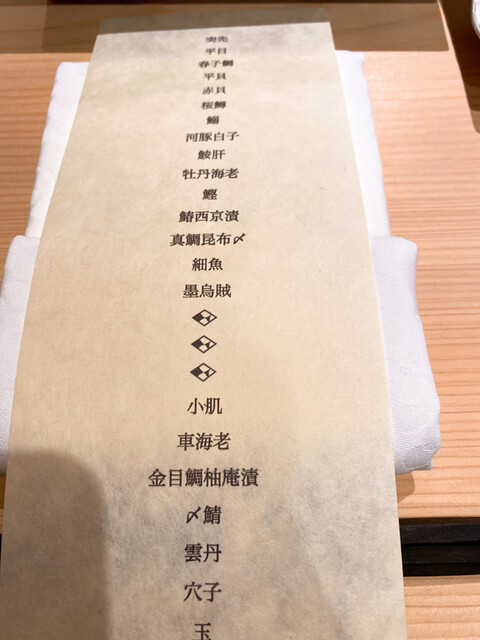 突先
平目
春子鯛
平貝
赤貝
桜鱒
鰯
河豚白子
鮟肝
牡丹海老
鰹
鰆西京漬
真鯛昆布〆
細魚
墨烏賊
小肌
車海老
金目鯛柚庵漬
〆鯖
雲丹
穴子
玉